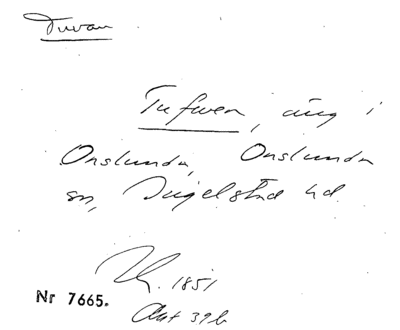 Tuvan
Tufwen, äng i
Onslunda, Onslunda
sn, Ingelstad hd.
1851
Nr 7665.
Akt 39b